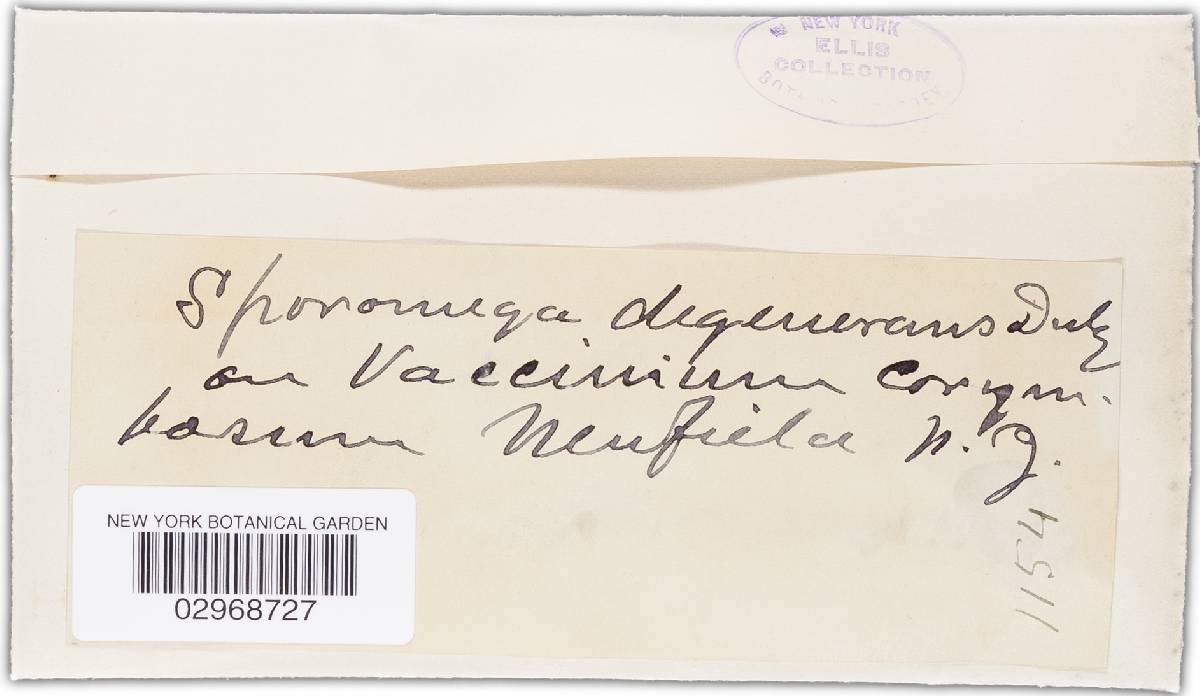 NEW YORK
ELLIS
COLLECTION
Sporomega degenerans Duby
on Vaccinium corym-
bosum Newfield N. J.
1154
NEW YORK BOTANICAL GARDEN
02968727